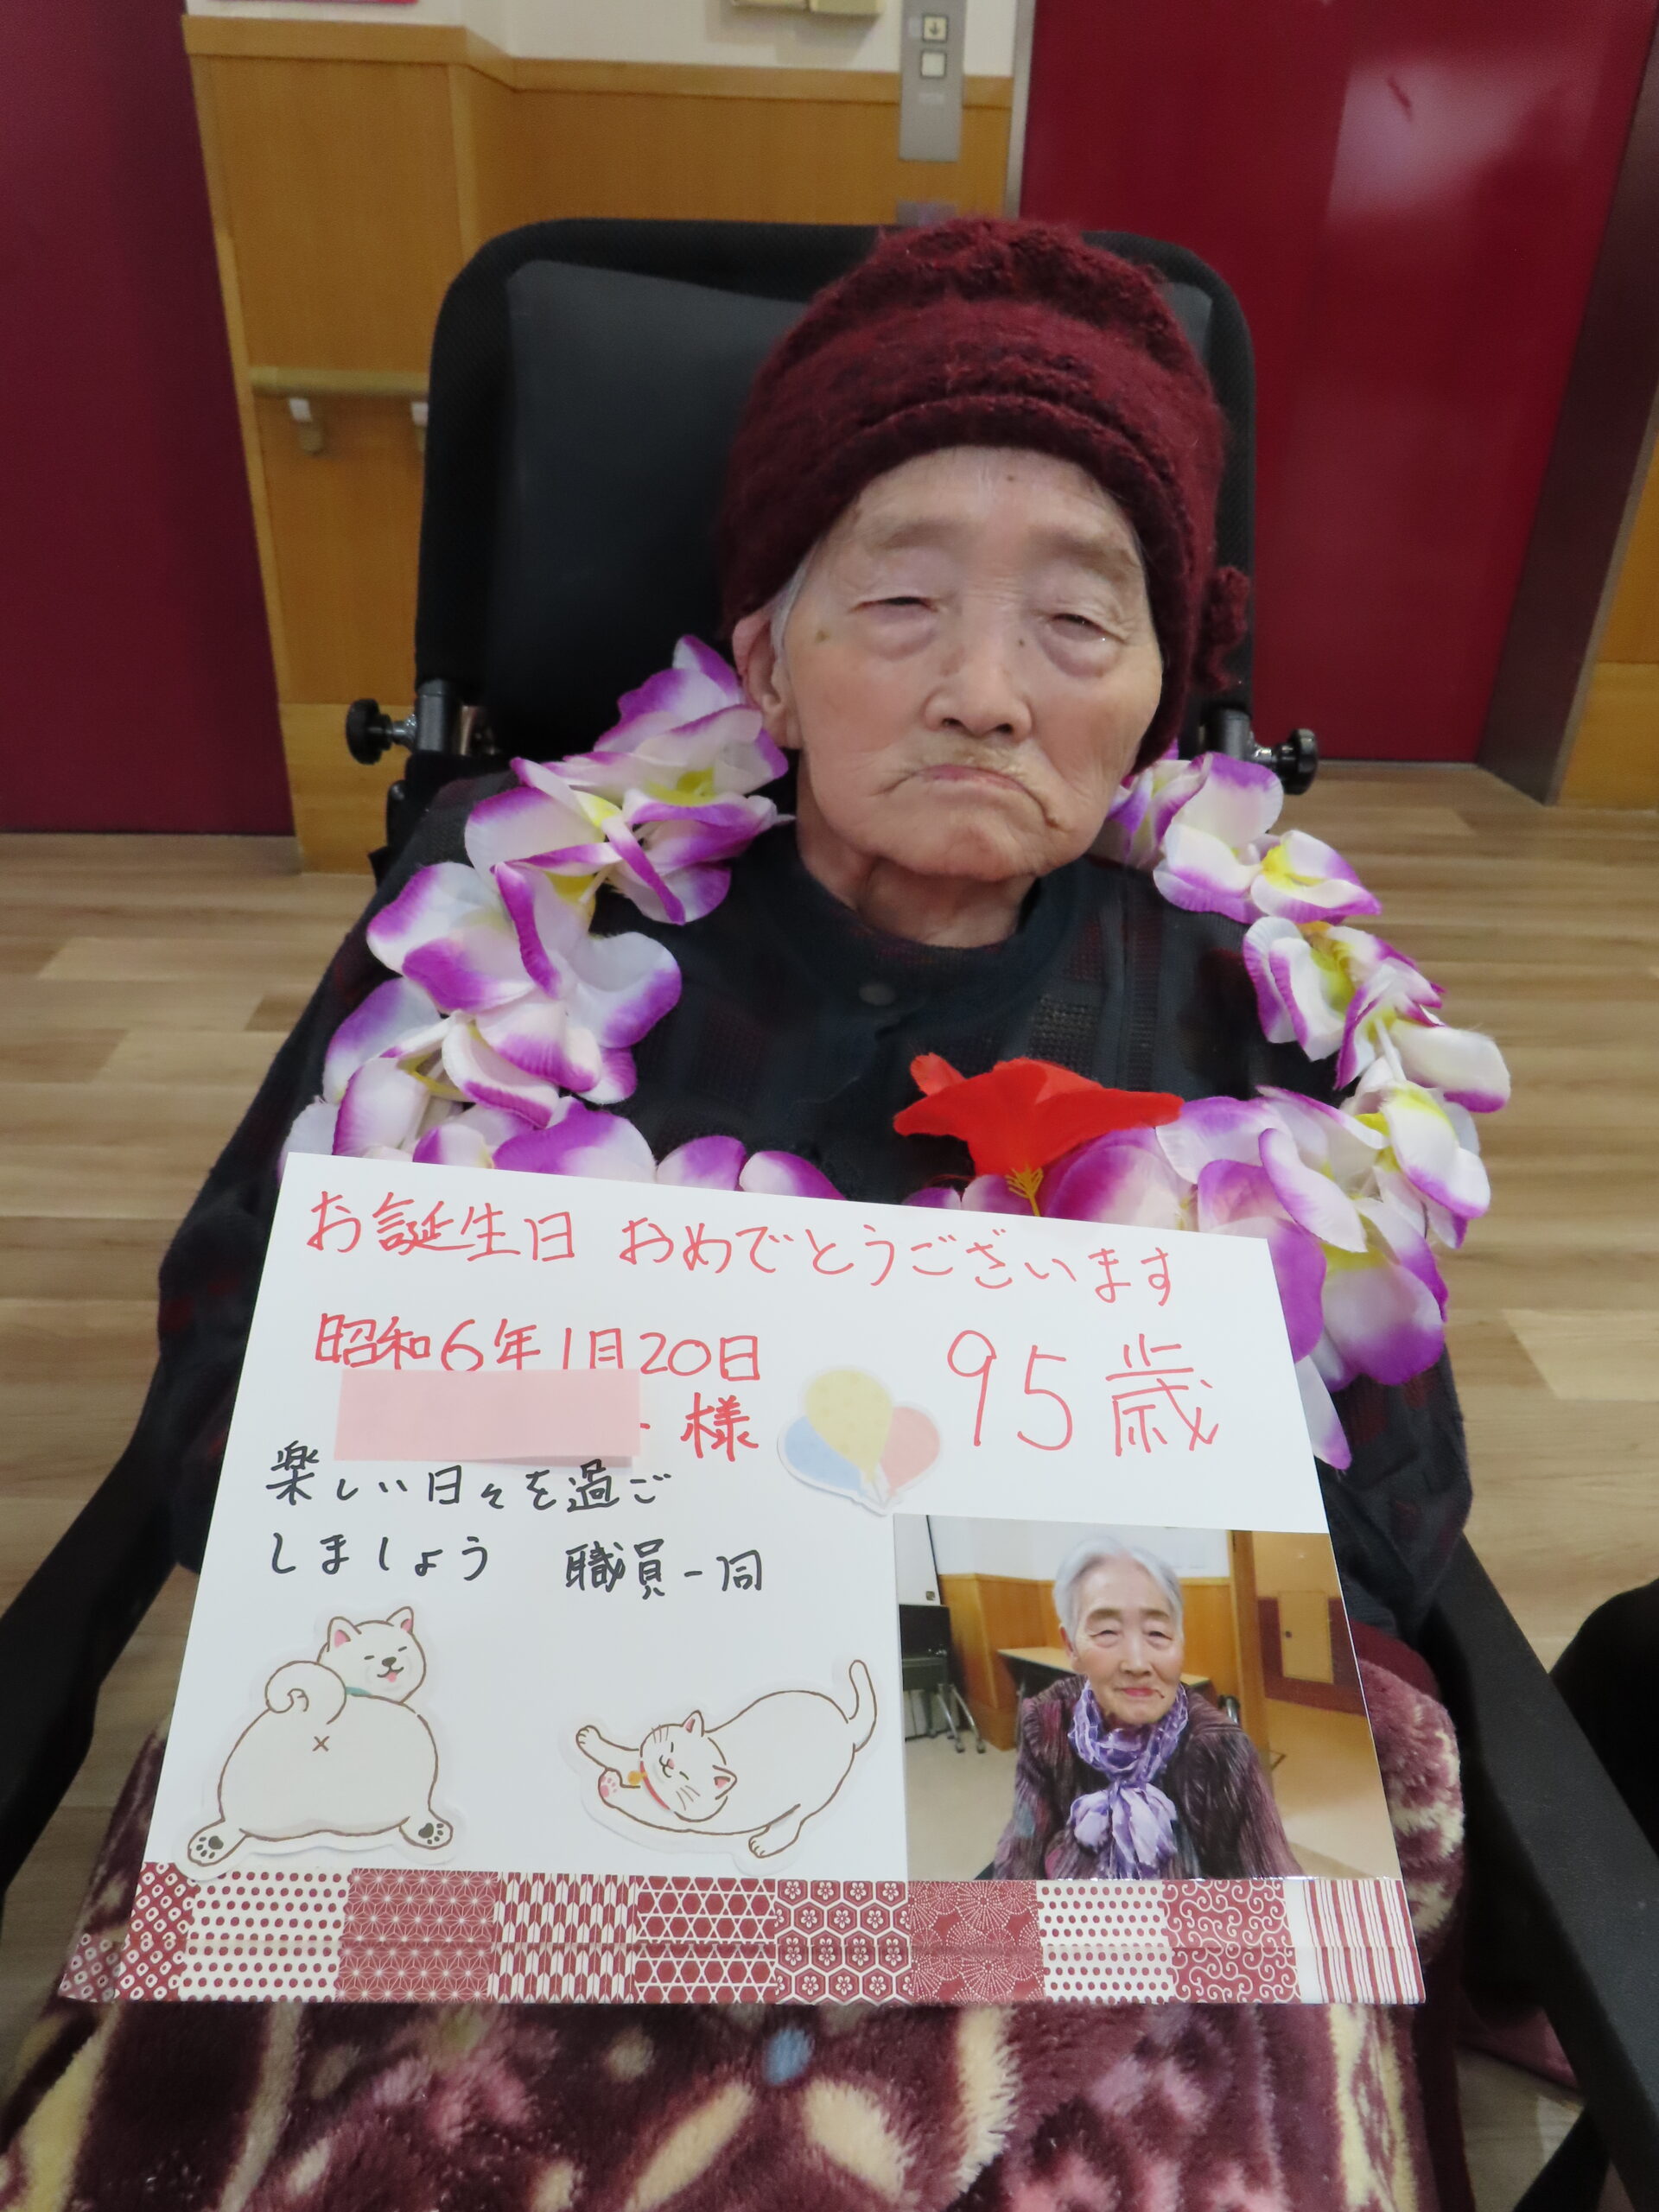 お誕生日 おめでとうございます
昭和6年1月20日
95歳
様
楽しい日々を過ご
しましょう 職員一同